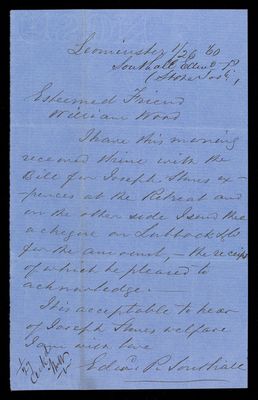 Leominster 1/26 60
Southall Edwd P
(Stones Jos
Esteemed Friend
William Wood
I have this morning
received thine with the
Bill for Joseph Stones ex-
pences at the Retreat and
on the other side I send thee
a cheque on Lubbock &Co
for the amount, – the receipt
of which be pleased to
acknowledge. –
It is acceptable to hear
of Joseph Stones welfare
I am with love
Edwd P. Southall